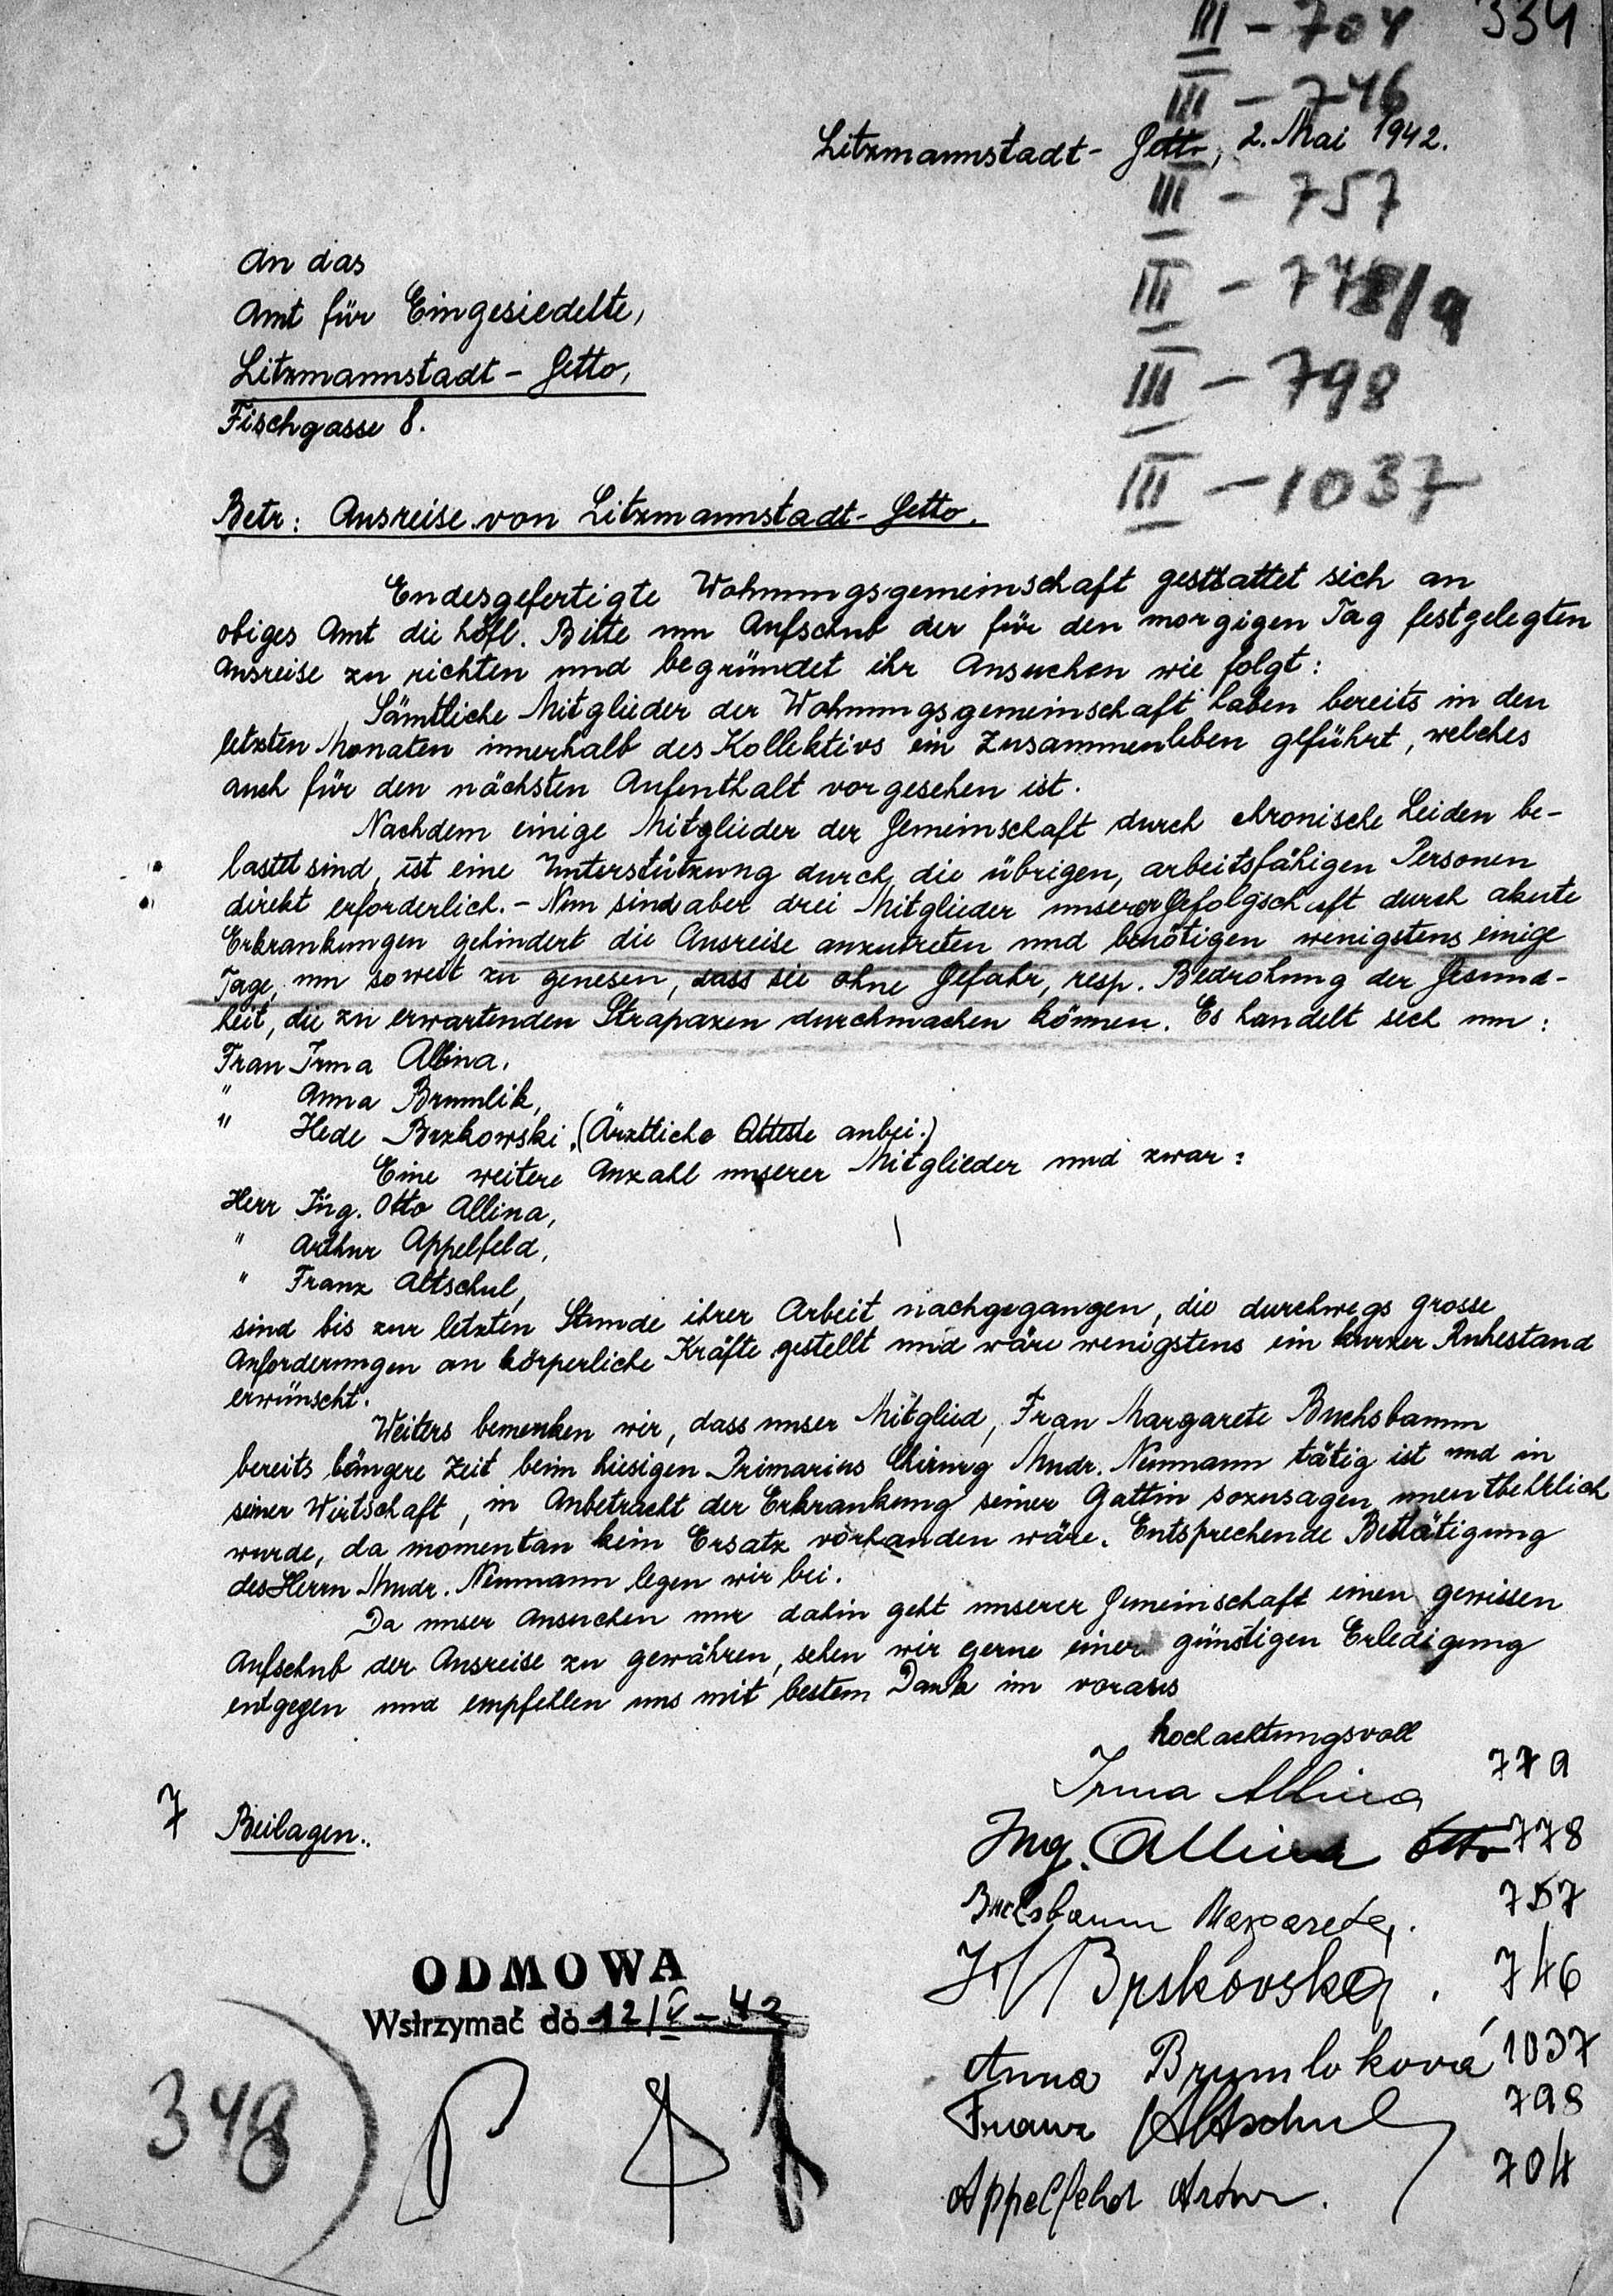 334
III - 704
III - 746
Litzmannstadt - Getto, 2. Mai 1942.
III - 757
III - 778/9
III - 798
III - 1037
An das
Amt für Eingesiedelte,
Litzmannstadt - Getto,
Fischgasse 8.
Betr: Ausreise von Litzmannstadt - Getto.
Endesgefertigte Wohnungsgemeinschaft gestattet sich an
obiges Amt die höfl. Bitte um Aufschub der für den morgigen Tag festgelegten
Ausreise zu richten und begründet ihr Ansuchen wie folgt:
Sämtliche Mitglieder der Wohnungsgemeinschaft haben bereits in den
letzten Monaten innerhalb des Kollektivs ein Zusammenleben geführt, welches
auch für den nächsten Aufenthalt vorgesehen ist.
Nachdem einige Mitglieder der Gemeinschaft durch chronische Leiden be-
lastet sind, ist eine Unterstützung durch die übrigen, arbeitsfähigen Personen
direkt erforderlich. - Nun sind aber drei Mitglieder unserer Gefolgschaft durch akute
Erkrankungen gehindert die Ausreise anzutreten und benötigen wenigstens einige
Tage, um soweit zu genesen, dass sie ohne Gefahr, resp. Bedrohung der Gesund-
heit, die zu erwartenden Strapazen durchmachen können. Es handelt sich um:
Frau Irma Allina,
" Anna Brumlik,
" Hede Brzkowski. (Ärztliche Atteste anbei.)
Eine weitere Anzahl unserer Mitglieder und zwar:
Herr Ing. Otto Allina,
" Arthur Appelfeld,
" Franz Altschul,
sind bis zur letzten Stunde ihrer Arbeit nachgegangen, die durchwegs grosse
Anforderungen an körperliche Kräfte gestellt und wäre wenigstens ein kurzer Ruhestand
erwünscht.
Weiters bemerken wir, dass unser Mitglied, Frau Margarete Buchsbaum
bereits längere Zeit beim hiesigen Primarius Chirurg Mudr. Neumann tätig ist und in
seiner Wirtschaft, in Anbetracht der Erkrankung seiner Gattin sozusagen unentbehrlich
wurde, da momentan kein Ersatz vorhanden wäre. Entsprechende Bestätigung
des Herrn Mudr. Neumann legen wir bei.
Da unser Ansuchen nur dahin geht unserer Gemeinschaft einen gewissen
Aufschub der Ausreise zu gewähren, sehen wir gerne einer günstigen Erledigung
entgegen und empfehlen uns mit bestem Dank im voraus
hochachtungsvoll
Irma Allina 779
7 Beilagen.
Ing. Allina Otto 778
Buchsbaum Margareta. 757
746
Anna Brumlíková 1037
Franz Altschul 798
Appelfeld Artur. 704
ODMOWA
Wstrzymać do 12/V - 42
348